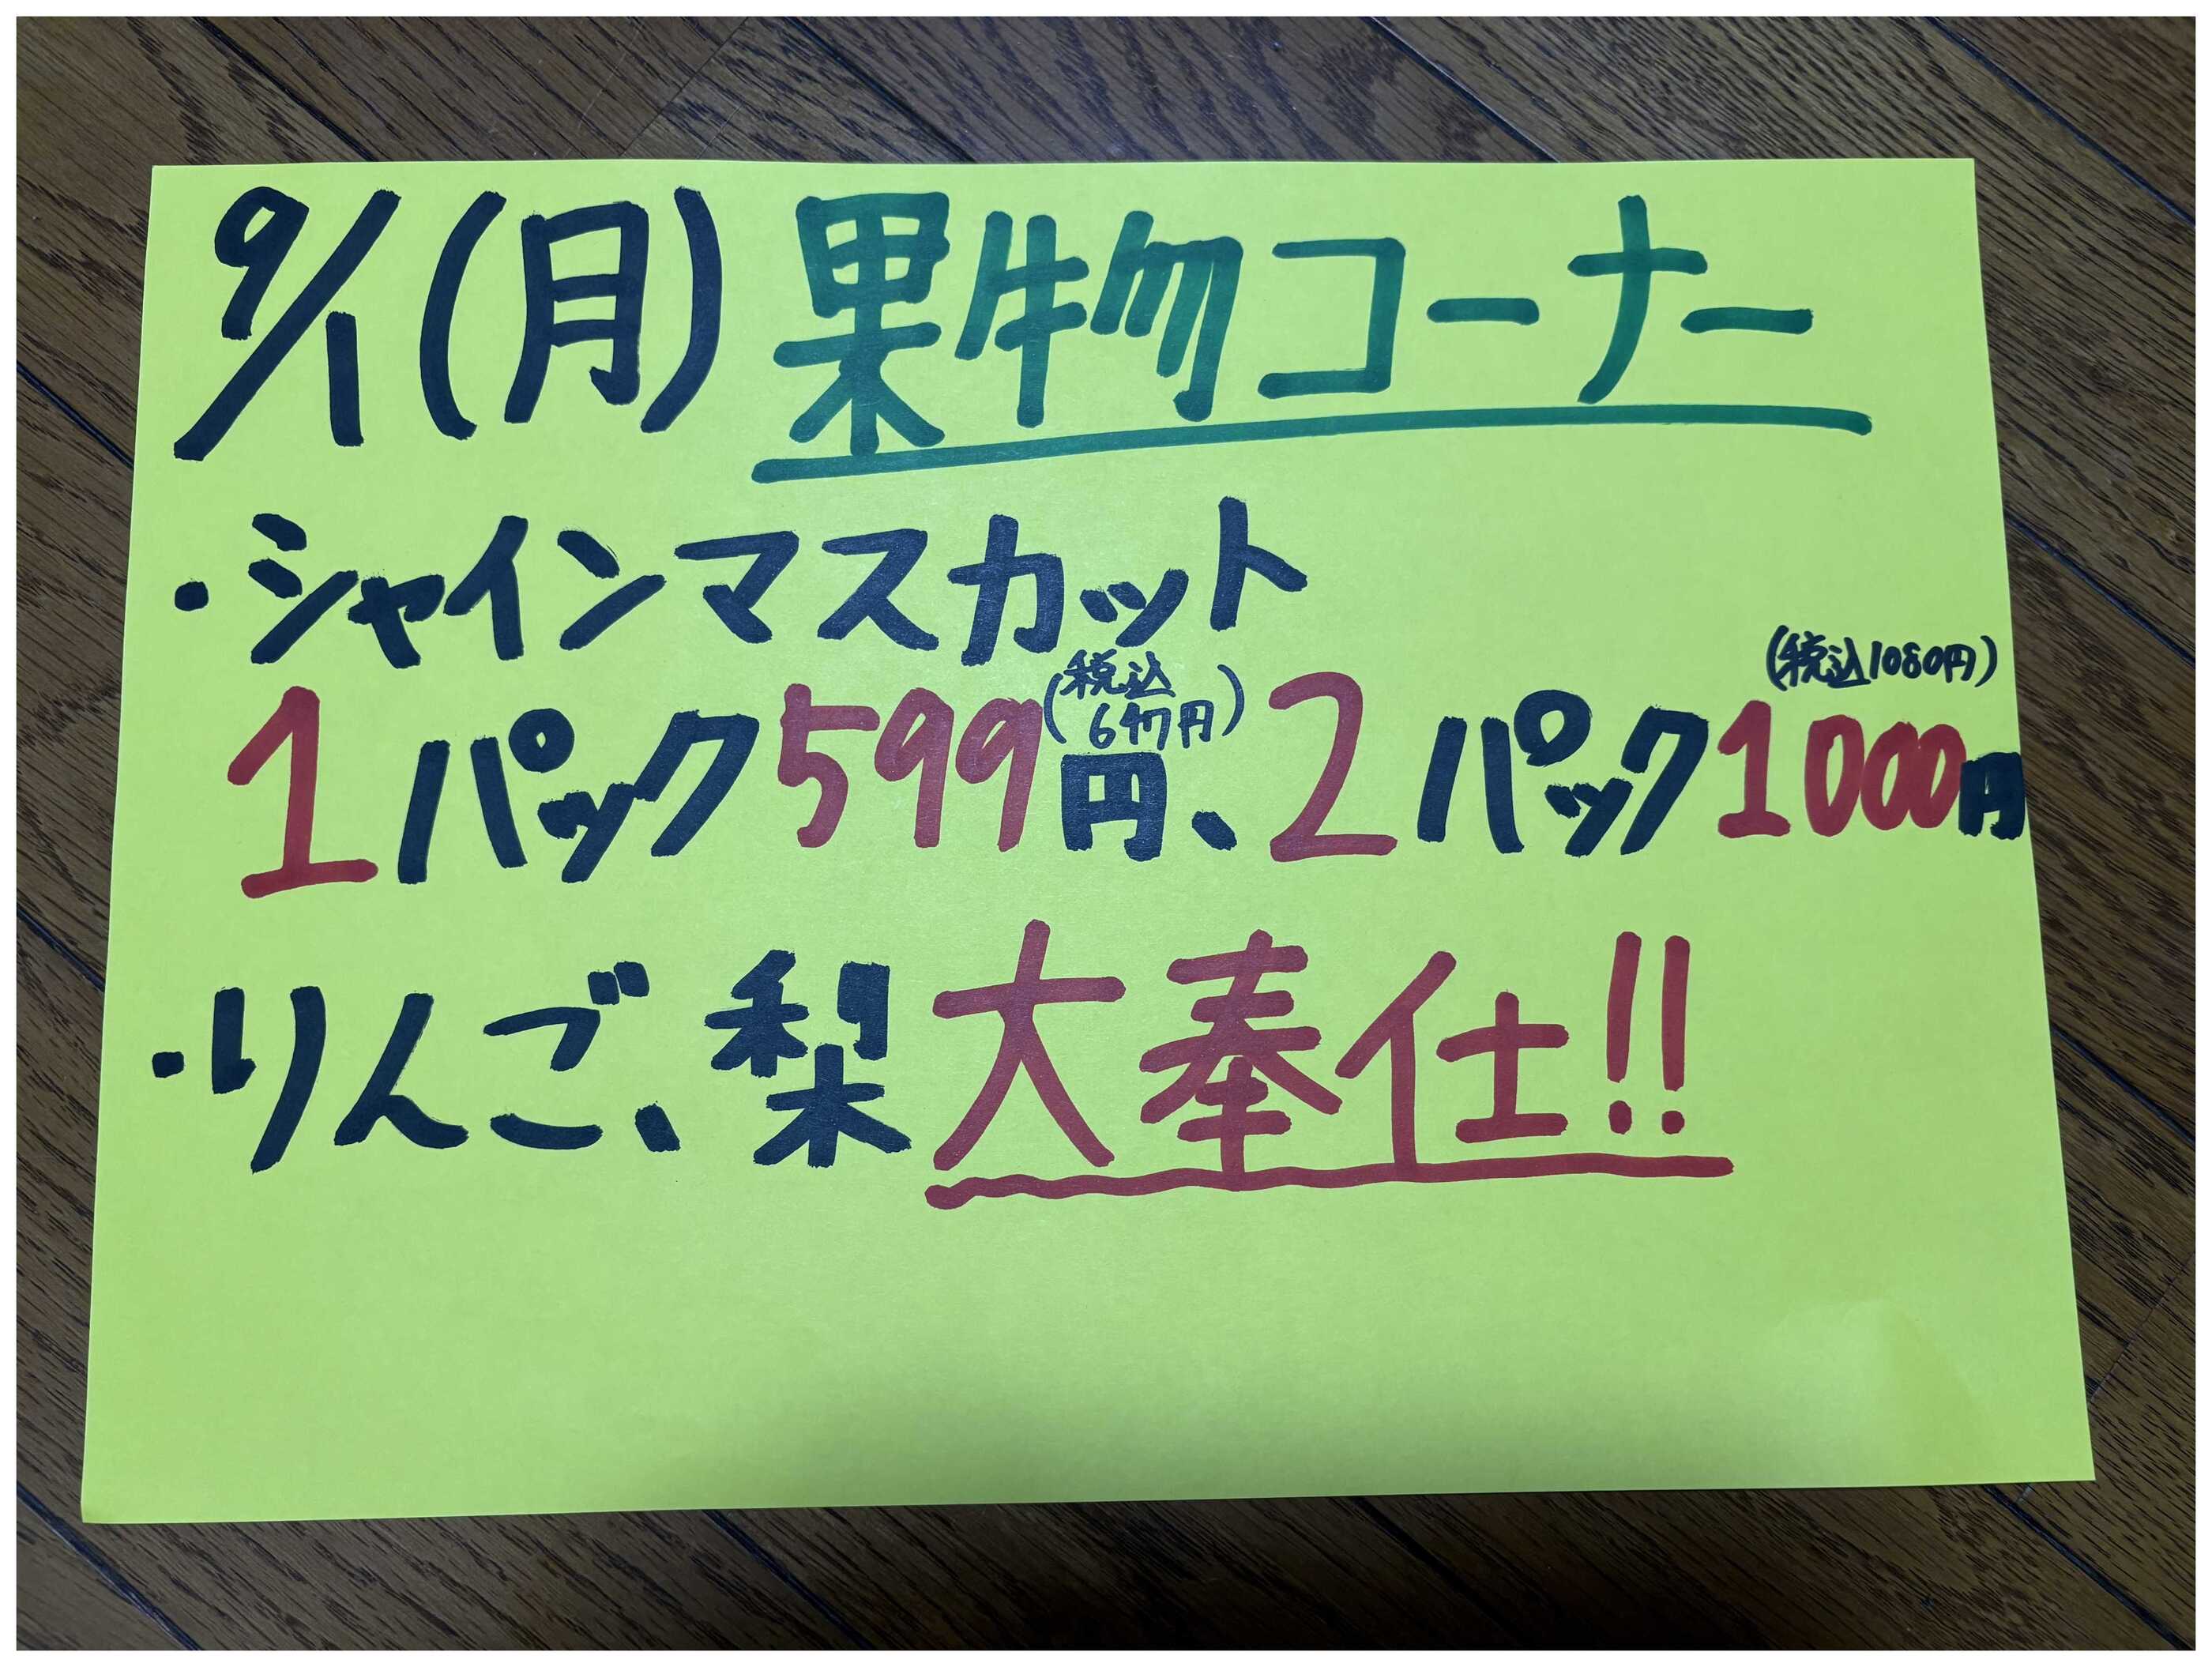 9/1(月)果物コーナー
・シャインマスカット
1パック599円(税込647円)、2パック1000円(税込1080円)
・りんご、梨大奉仕!!